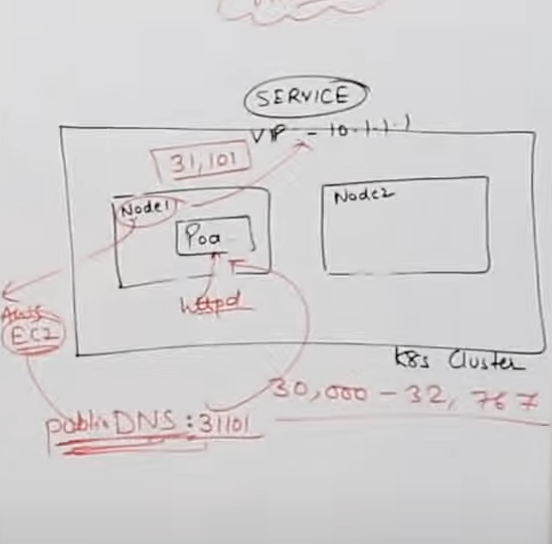 SERVICE
VIP - 10.1.1.1
31,101
Node1
Node2
Pod
httpd
AWS
EC2
K8s Cluster
30,000 - 32,767
public DNS : 31101